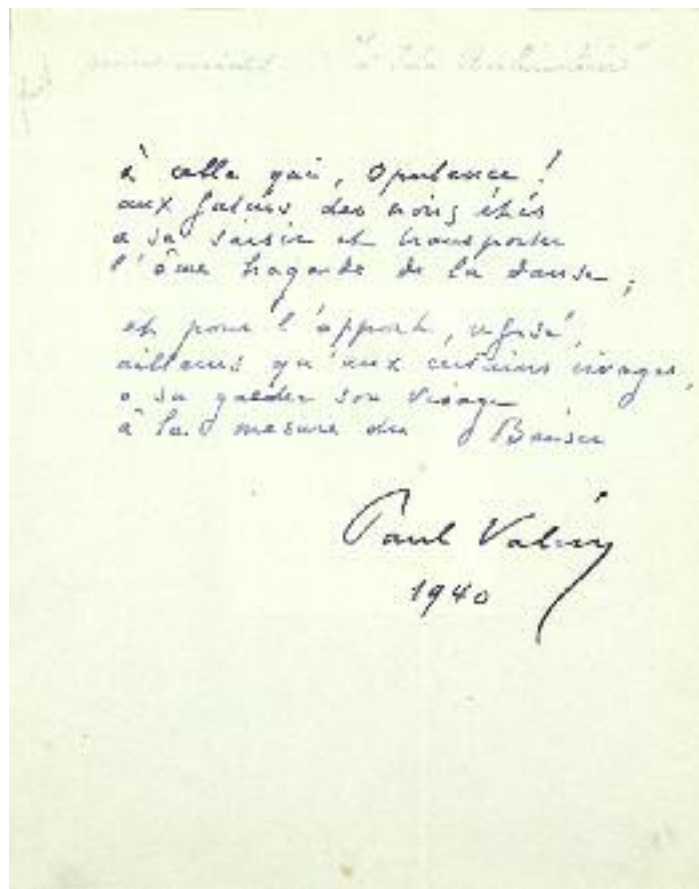 à celle qui, Opulence !
aux des noirs étés
a su saisir et transporter
l'âme hagarde de la danse ;
et pour l'apport, refusé,
ailleurs qu'aux certains rivages,
a su garder son visage
à la mesure du Baiser
Paul Valéry
1940